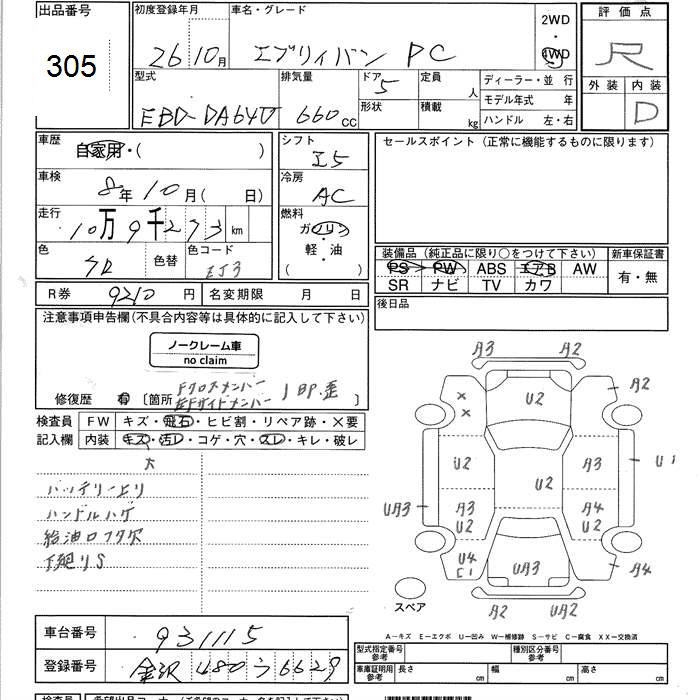 出品番号 305
初度登録年月 26 10月
車名・グレード エブリイバン PC
2WD・4WD
評価点 R
外装 内装 D
型式 EBD-DA64V
排気量 660cc
ドア 5
形状
定員 人
積載 kg
ディーラー・並 行
モデル年式 年
ハンドル 左・右
車歴 自家用・( )
車検 8年10月( 日)
走行 10万9千273km
色 色替
色コード ZJ3
シフト I5
冷房 AC
燃料 ガソリン
軽・油
( )
セールスポイント(正常に機能するものに限ります)
装備品(純正品に限り○をつけて下さい)
PS PW ABS エアB AW
SR ナビ TV カワ
新車保証書
有・無
R券 9210円
名変期限 月 日
後日品
注意事項申告欄(不具合内容等は具体的に記入して下さい)
ノークレーム車
no claim
修復歴 有 [箇所 Fクロスメンバー
左Fサイドメンバー
検査員記入欄
FW キズ・飛石・ヒビ割・リペア跡・×要
内装 キズ・汚レ・コゲ・穴・スレ・キレ・破レ
大
バッテリー上リ
ハンドルハゲ
給油口フタ欠
下廻りS
A3 A2
A2
U2
U2 A3 U1
U2
UA3 A3 A4
U2 U2
U4
C1
UA3
A4
A2 UA2
スペア
A－キズ E－エクボ U－凹み W－補修跡 S－サビ C－腐食 XX－交換済
車台番号 931115
登録番号 金沢 480 う 6629
型式指定番号 参考
種別区分番号 参考
車庫証明用 参考
長さ cm
幅 cm
高さ cm